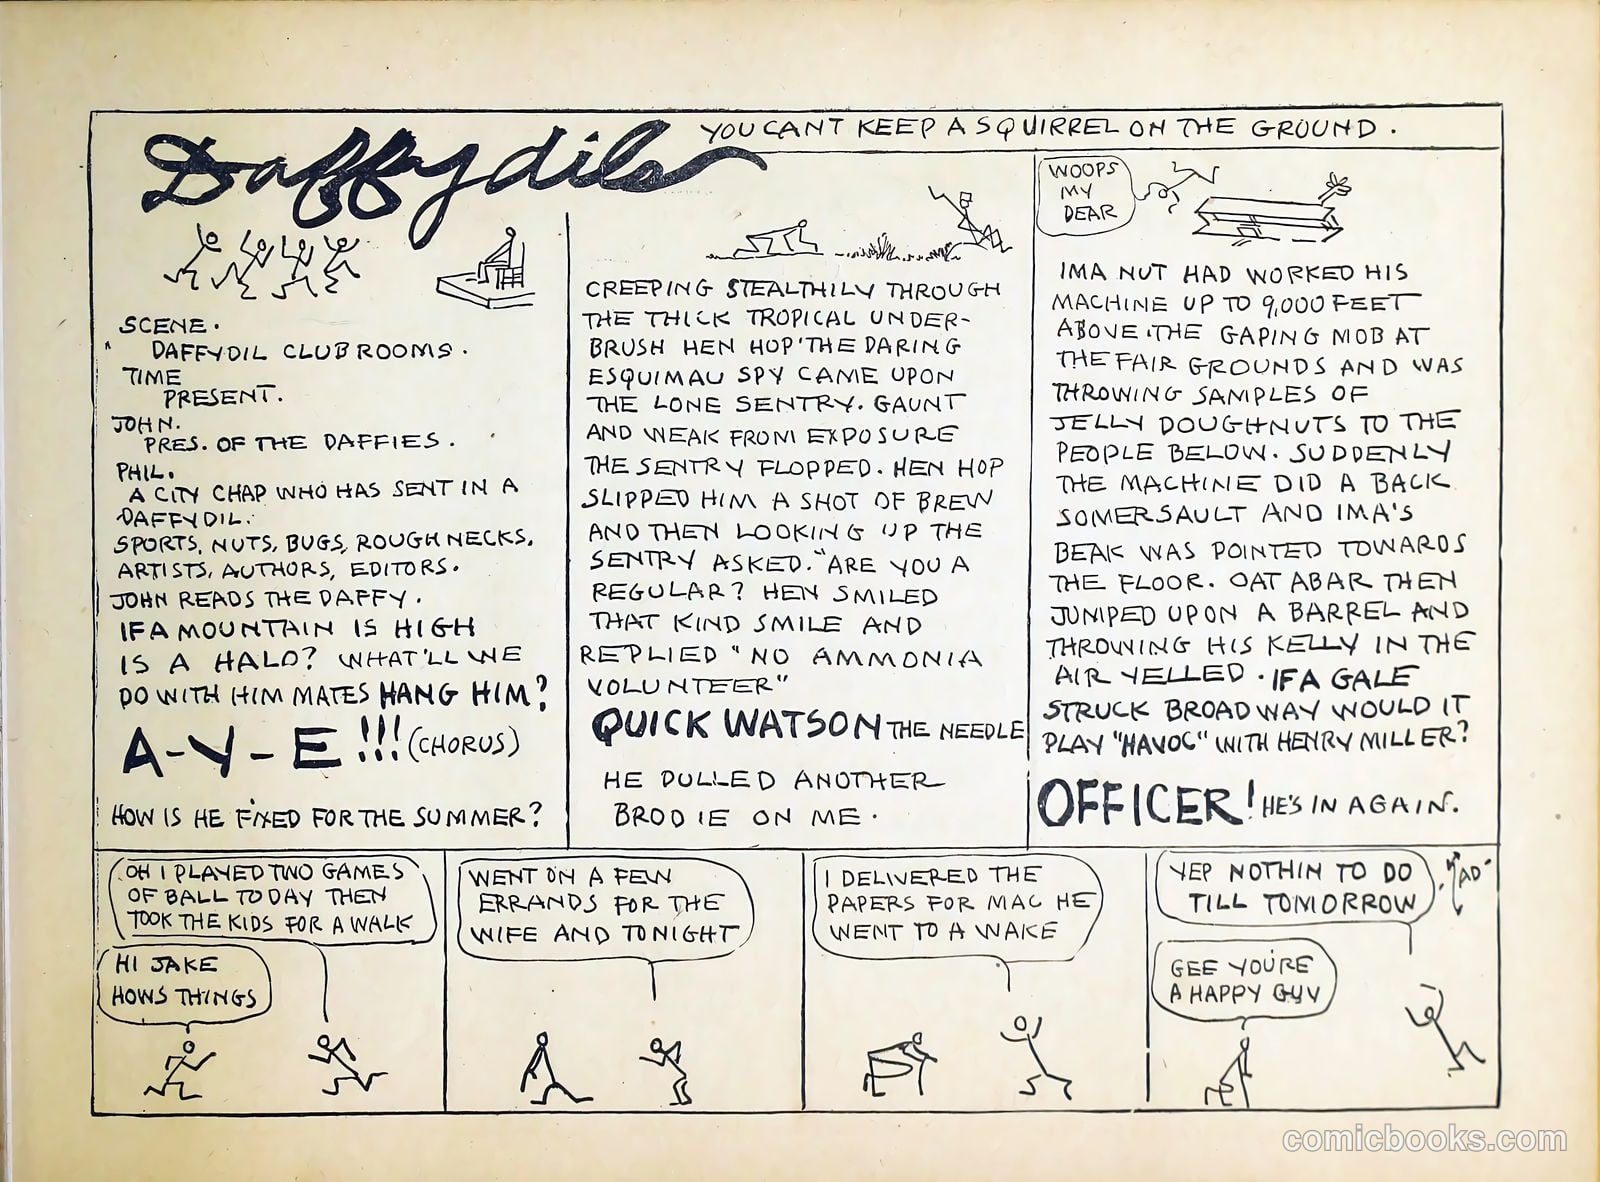 Daffydils
YOU CANT KEEP A SQUIRREL ON THE GROUND.
SCENE.
DAFFYDIL CLUB ROOMS.
TIME
PRESENT.
JOHN.
PRES. OF THE DAFFIES.
PHIL.
A CITY CHAP WHO HAS SENT IN A
DAFFYDIL.
SPORTS, NUTS, BUGS, ROUGHNECKS,
ARTISTS, AUTHORS, EDITORS.
JOHN READS THE DAFFY.
IF A MOUNTAIN IS HIGH
IS A HALO? WHAT'LL WE
DO WITH HIM MATES HANG HIM?
A-Y-E!!! (CHORUS)
HOW IS HE FIXED FOR THE SUMMER?
CREEPING STEALTHILY THROUGH
THE THICK TROPICAL UNDER-
BRUSH HEN HOP THE DARING
ESQUIMAU SPY CAME UPON
THE LONE SENTRY. GAUNT
AND WEAK FROM EXPOSURE
THE SENTRY FLOPPED. HEN HOP
SLIPPED HIM A SHOT OF BREW
AND THEN LOOKING UP THE
SENTRY ASKED. "ARE YOU A
REGULAR? HEN SMILED
THAT KIND SMILE AND
REPLIED "NO AMMONIA
VOLUNTEER"
QUICK WATSON THE NEEDLE
HE PULLED ANOTHER
BRODIE ON ME.
WOOPS
MY
DEAR
IMA NUT HAD WORKED HIS
MACHINE UP TO 9,000 FEET
ABOVE THE GAPING MOB AT
THE FAIR GROUNDS AND WAS
THROWING SAMPLES OF
JELLY DOUGHNUTS TO THE
PEOPLE BELOW. SUDDENLY
THE MACHINE DID A BACK
SOMERSAULT AND IMA'S
BEAK WAS POINTED TOWARDS
THE FLOOR. OAT ABAR THEN
JUMPED UPON A BARREL AND
THROWING HIS KELLY IN THE
AIR YELLED. IF A GALE
STRUCK BROADWAY WOULD IT
PLAY "HAVOC" WITH HENRY MILLER?
OFFICER! HE'S IN AGAIN.
OH I PLAYED TWO GAMES
OF BALL TODAY THEN
TOOK THE KIDS FOR A WALK
HI JAKE
HOWS THINGS
WENT ON A FEW
ERRANDS FOR THE
WIFE AND TONIGHT
I DELIVERED THE
PAPERS FOR MAC HE
WENT TO A WAKE
YEP NOTHIN TO DO
TILL TOMORROW
TAD
GEE YOU'RE
A HAPPY GUY
comicbooks.com